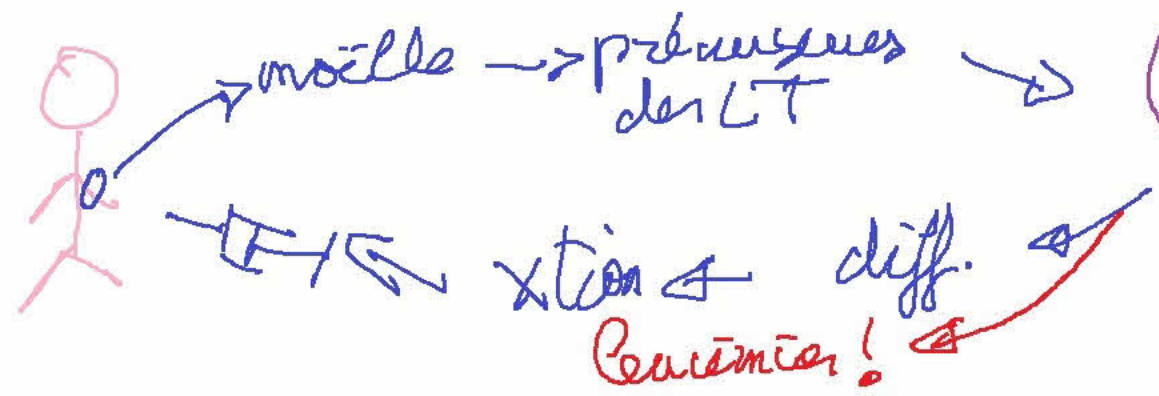 moëlle → précurseurs →
des LT
xtion ← diff. ←
Leucémies!